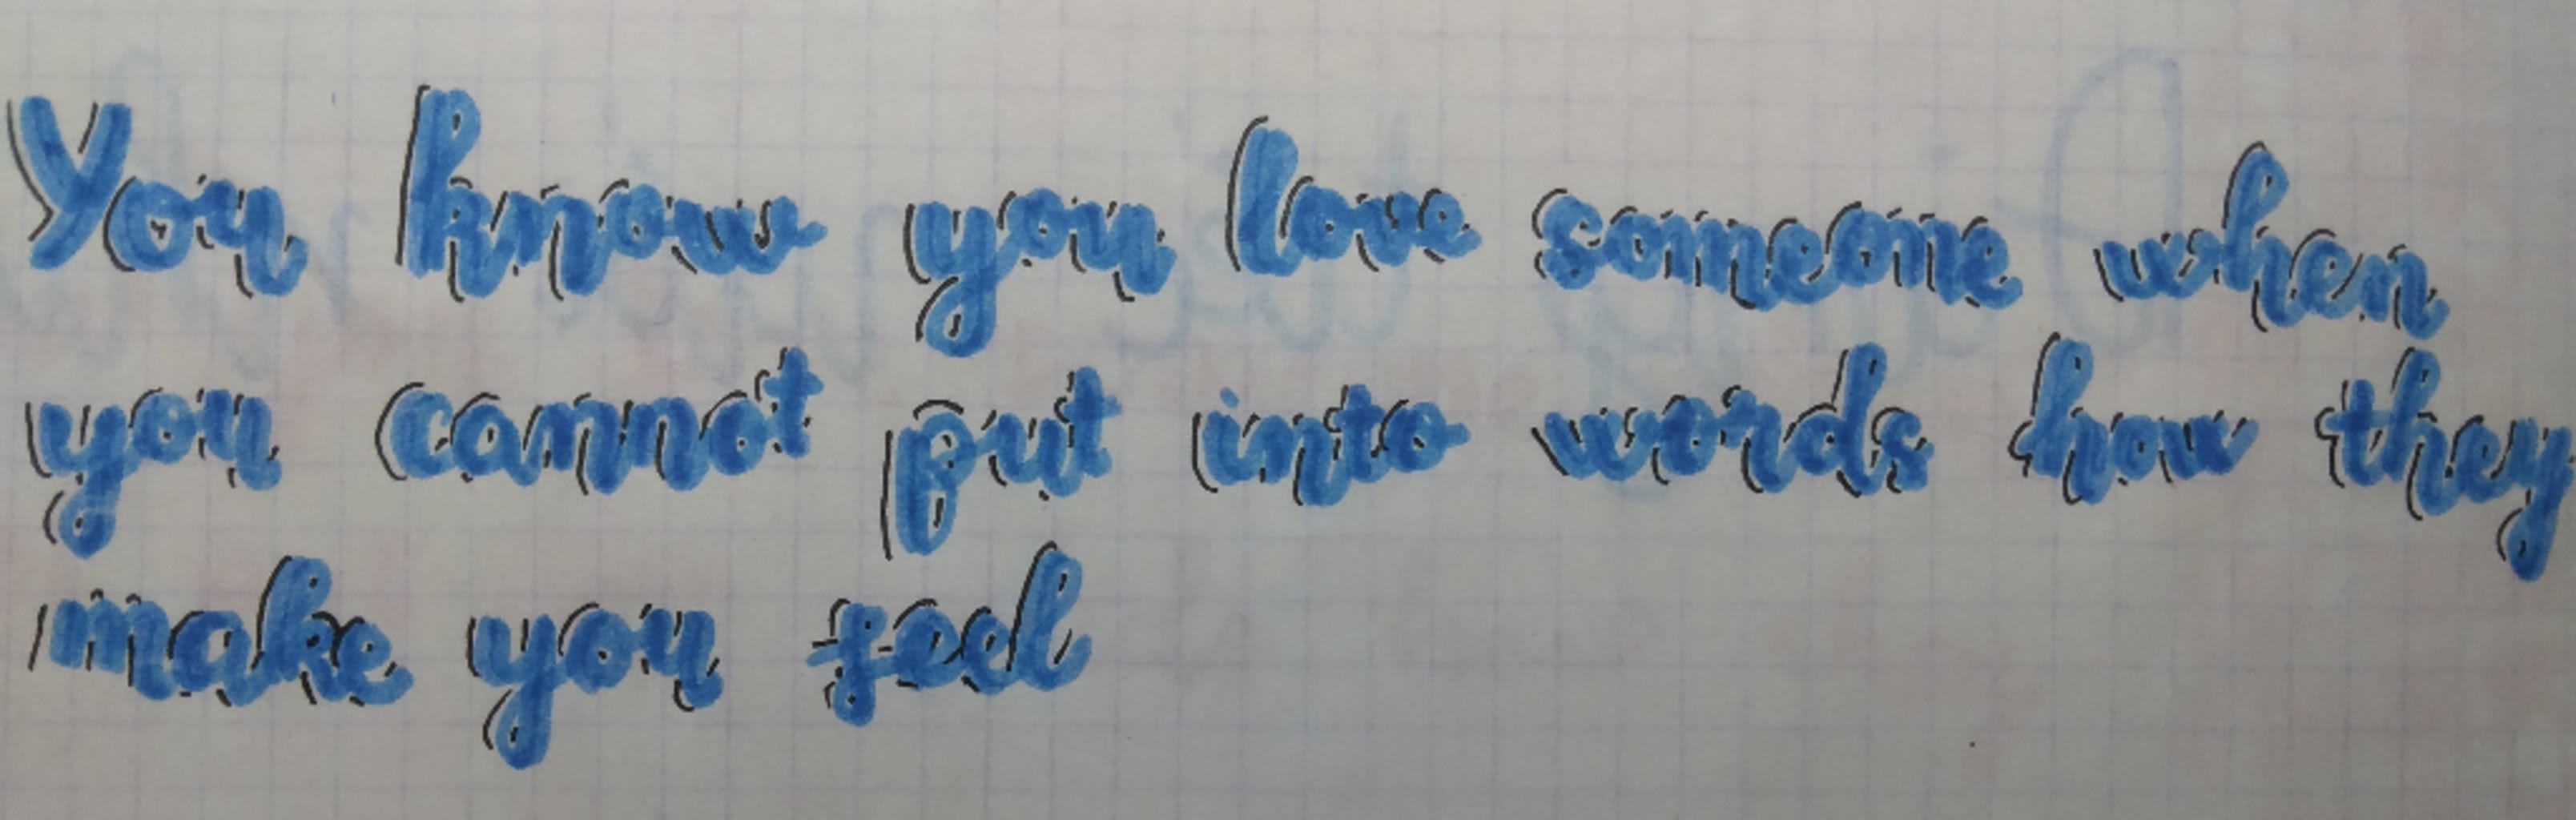 You know you love someone when
you cannot put into words how they
make you feel